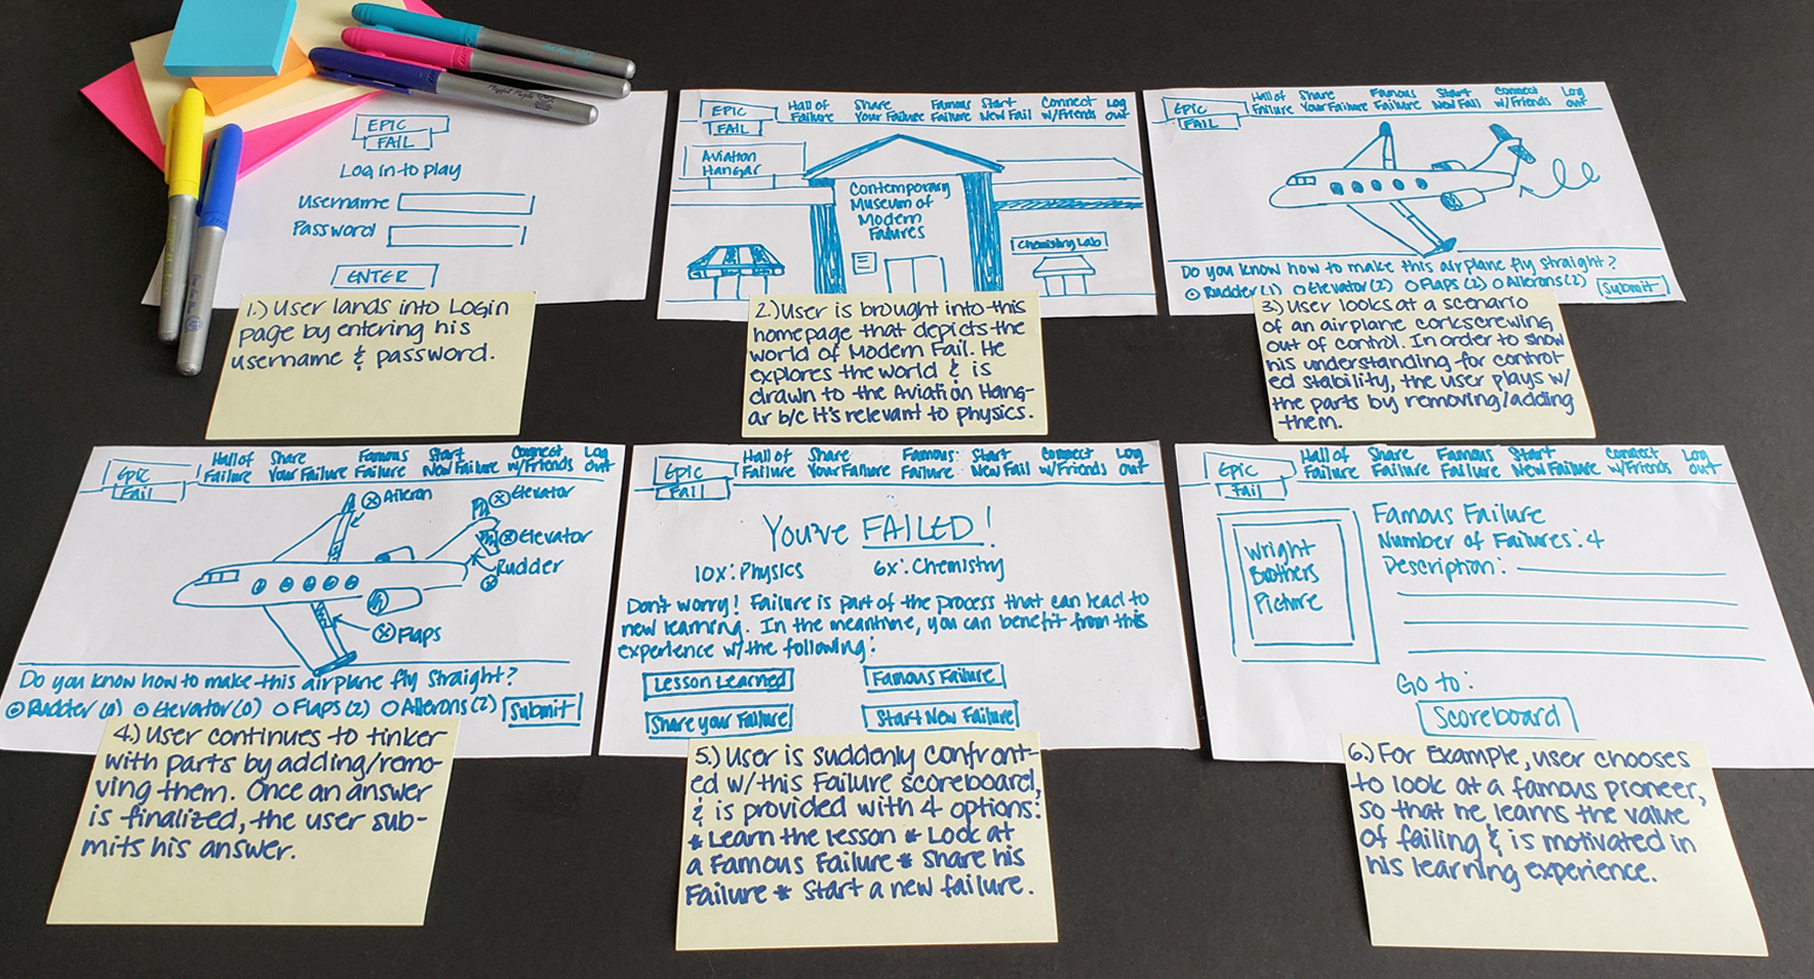 EPIC
FAIL
Log in to play
Username
Password
ENTER
1.) User lands into Login
page by entering his
username & password.
EPIC
FAIL
Hall of
Failure
Share
Your Failure
Famous
Failure
Start
New Fail
Connect
w/Friends
Log
out
Aviation
Hangar
Contemporary
Museum of
Modern
Failures
Chemistry Lab
2.) User is brought into this
homepage that depicts the
world of Modern Fail. He
explores the world & is
drawn to the Aviation Hang-
ar b/c it's relevant to physics.
EPIC
FAIL
Hall of
Failure
Share
Your Failure
Famous
Failure
Start
New Fail
Connect
w/Friends
Log
out
Do you know how to make this airplane fly straight?
Rudder (1) Elevator (2) Flaps (2) Ailerons (2) Submit
3.) User looks at a scenario
of an airplane corkscrewing
out of control. In order to show
his understanding for control-
ed stability, the user plays w/
the parts by removing/adding
them.
Epic
Fail
Hall of
Failure
Share
Your Failure
Famous
Failure
Start
New Failure
Connect
w/Friends
Log
out
Aileron
Elevator
Elevator
Rudder
Flaps
Do you know how to make this airplane fly straight?
Rudder (0) Elevator (0) Flaps (2) Ailerons (2) Submit
4.) User continues to tinker
with parts by adding/remo-
ving them. Once an answer
is finalized, the user sub-
mits his answer.
Epic
Fail
Hall of
Failure
Share
Your Failure
Famous
Failure
Start
New Fail
Connect
w/Friends
Log
out
You've FAILED!
10x: Physics 6x: Chemistry
Don't worry! Failure is part of the process that can lead to
new learning. In the meantime, you can benefit from this
experience w/the following:
Lesson Learned Famous Failure
Share your Failure Start New Failure
5.) User is suddenly confront-
ed w/this Failure scoreboard,
& is provided with 4 options:
* Learn the lesson * Look at
a Famous Failure * Share his
Failure * Start a new failure.
Epic
Fail
Hall of
Failure
Share
Failure
Famous
Failure
Start
New Failure
Connect
w/Friends
Log
out
Wright
Brothers
Picture
Famous Failure
Number of Failures: 4
Description:
Go to:
Scoreboard
6.) For Example, user chooses
to look at a famous pioneer,
so that he learns the value
of failing & is motivated in
his learning experience.